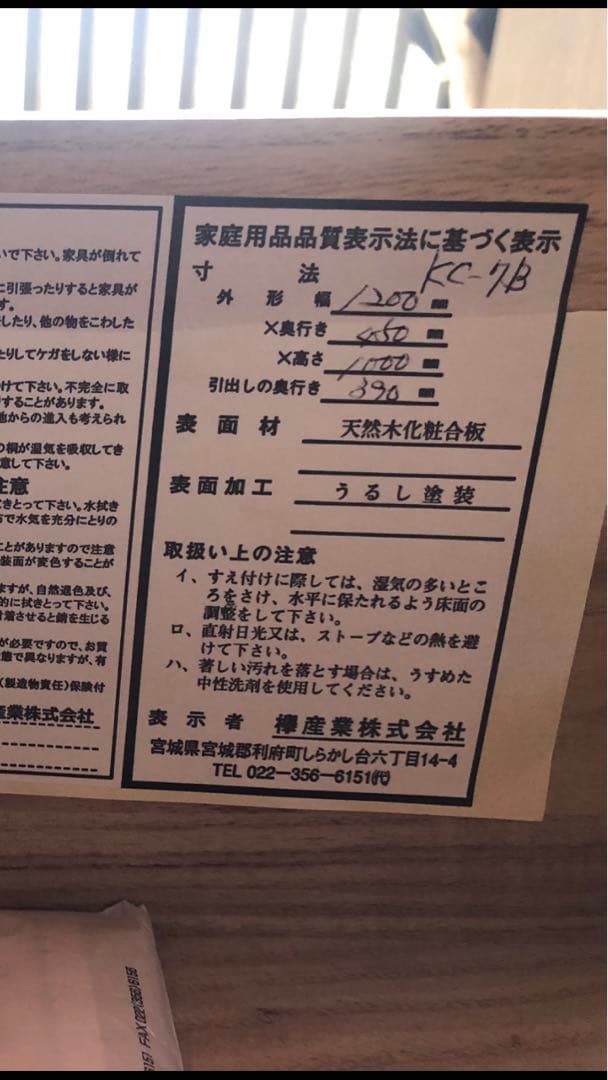 いで下さい。家具が倒れて
に引張ったりすると家具が
す。
したり、他の物をこわした
たりしてケガをしない様に
けて下さい。不完全に取
することがあります。
他からの進入も考えられ
の桐が湿気を吸収してき
意して下さい。
注意
きとって下さい。水拭き
布で水気を充分にとりの
ことがありますので注意
装面が変色することが
ますが、自然退色及び、
的に拭きとって下さい。
付着させると錆を生じる
が必要ですので、お買
態で異なりますが、有
(製造物責任)保険付
産業株式会社
家庭用品品質表示法に基づく表示
寸法 KC-7B
外形幅 1200 mm
×奥行き 450 mm
×高さ 1000 mm
引出しの奥行き 390 mm
表面材 天然木化粧合板
表面加工 うるし塗装
取扱い上の注意
イ、すえ付けに際しては、湿気の多いとこ
ろをさけ、水平に保たれるよう床面の
調整をして下さい。
ロ、直射日光又は、ストーブなどの熱を避
けて下さい。
ハ、著しい汚れを落とす場合は、うすめた
中性洗剤を使用してください。
表示者 欅産業株式会社
宮城県宮城郡利府町しらかし台六丁目14-4
TEL 022-356-6151㈹
FAX 022(356)6156